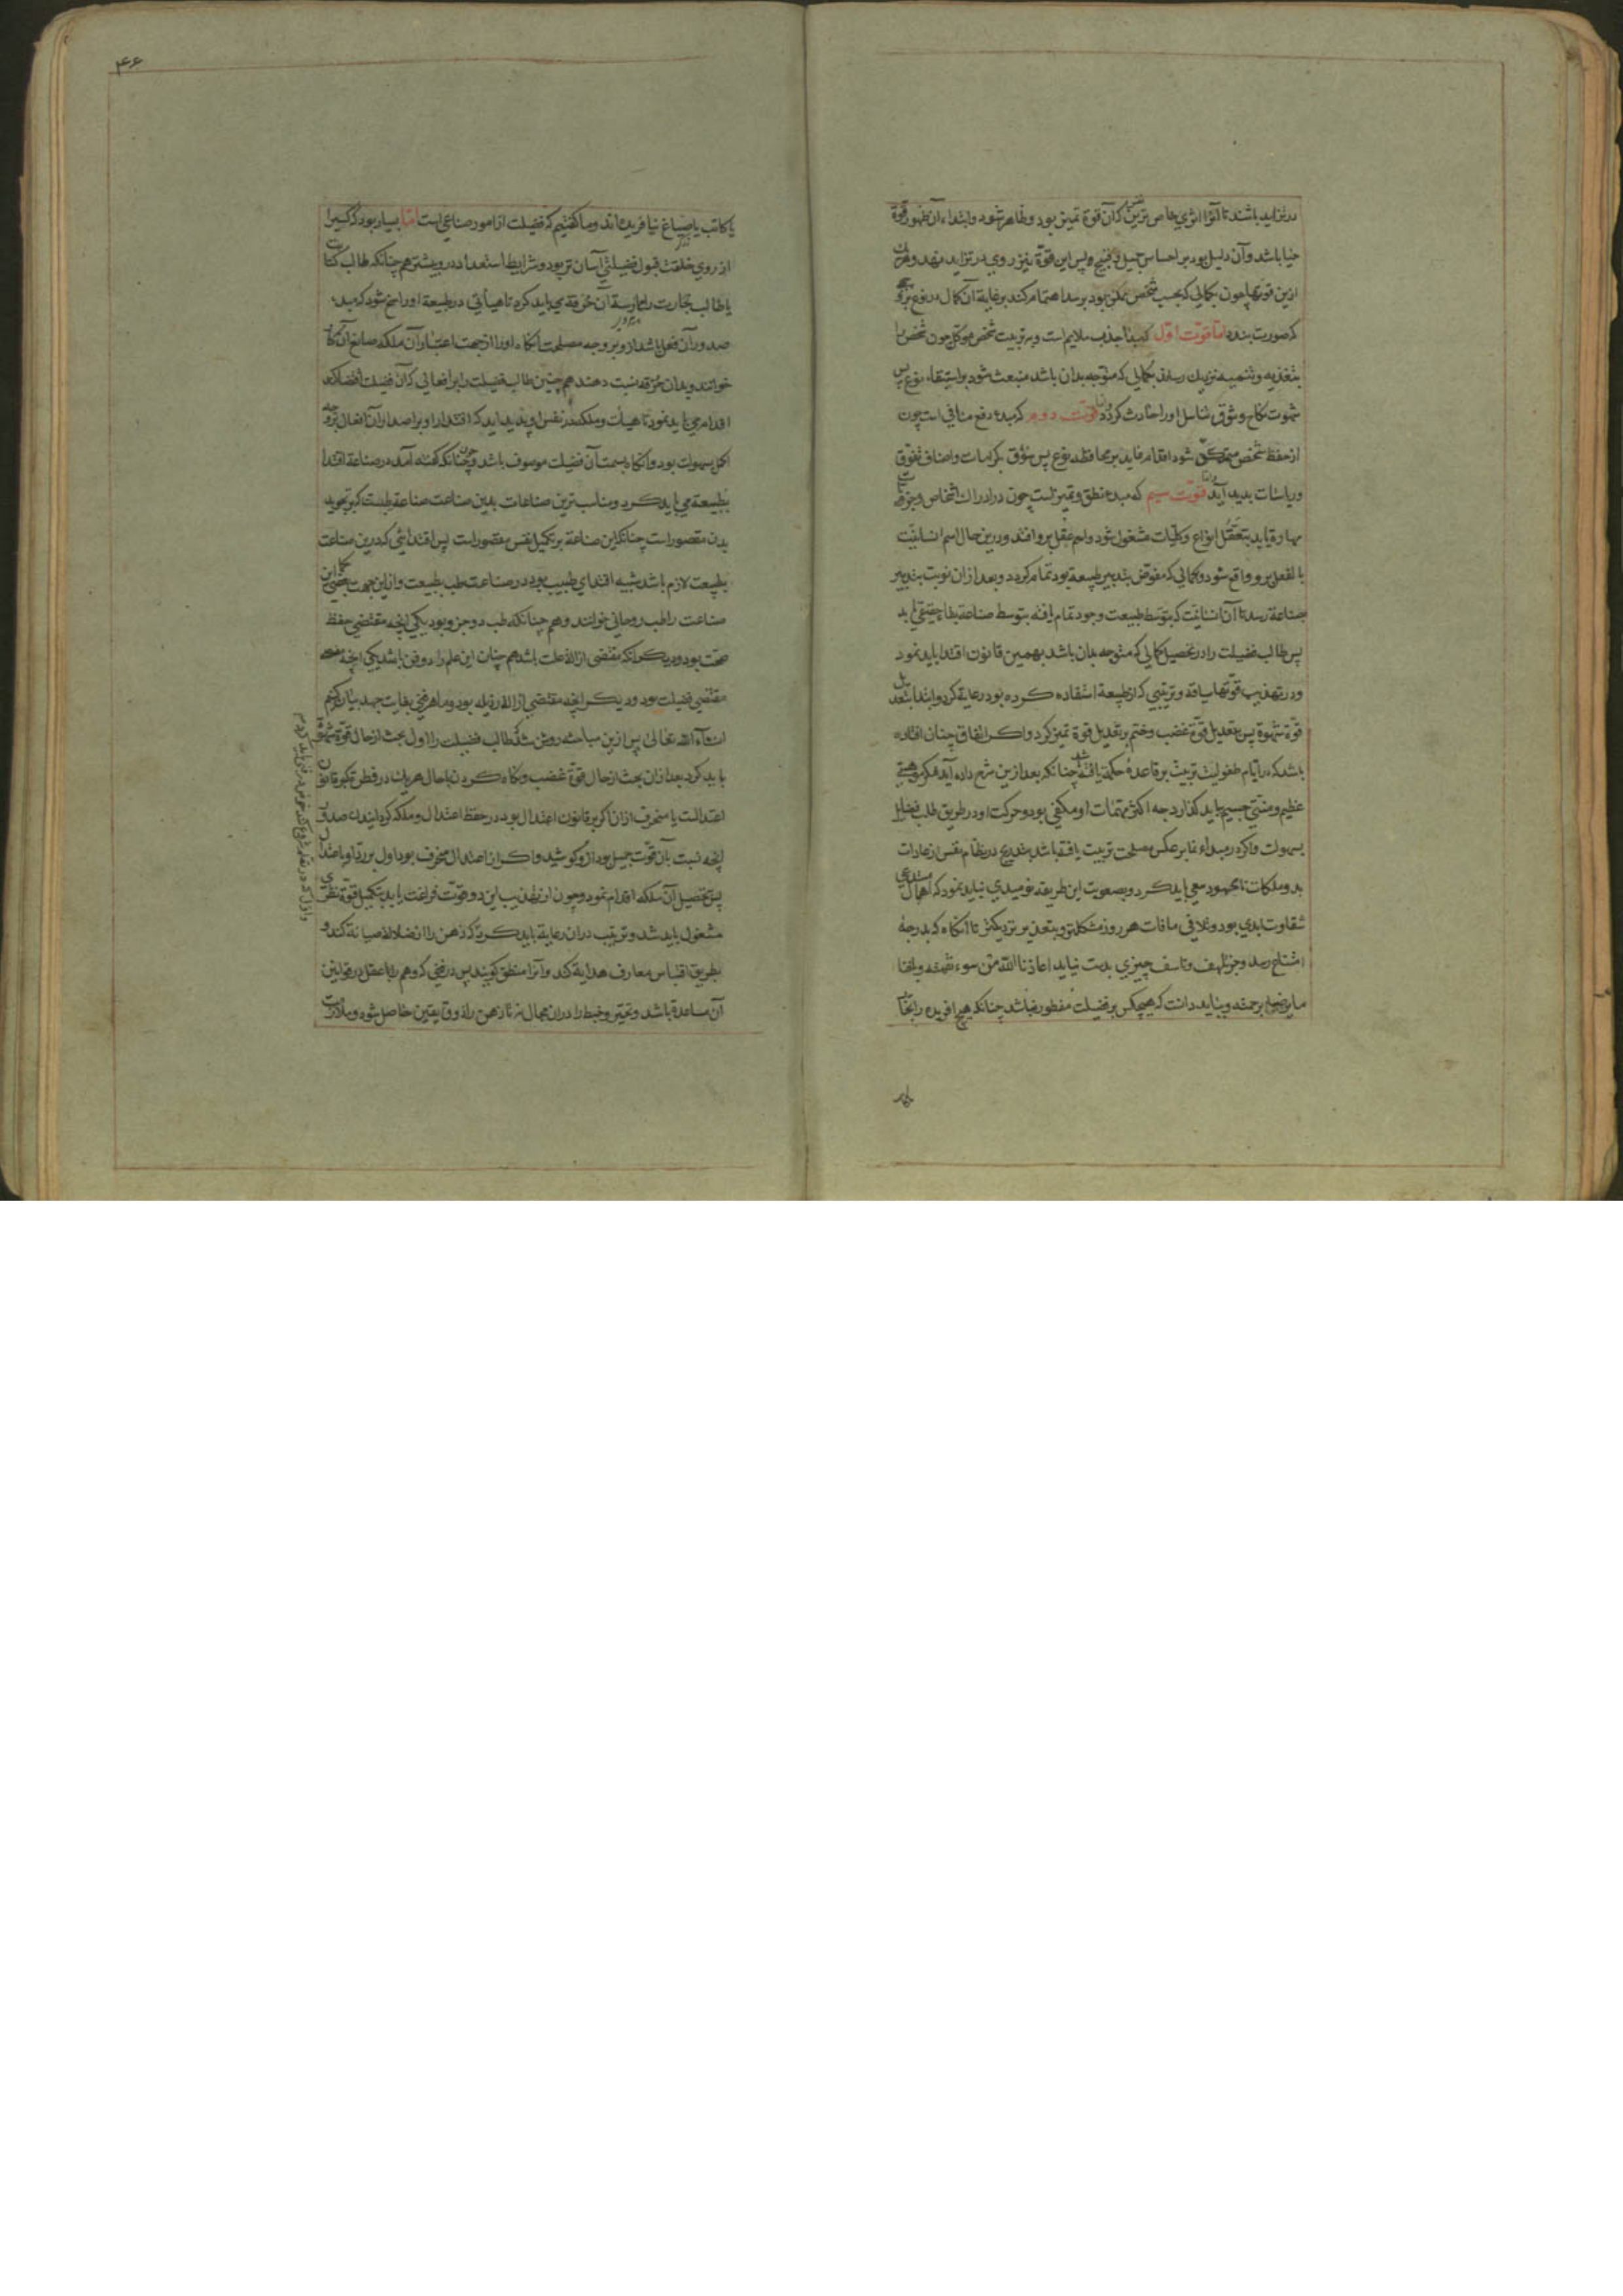 در تزاید باشند تا آنرا اثری خاص ترین نفس که آن قوة تمیز بود و ظاهر شود و ابتداء آن ظهور قوة
حیا باشد و آن دلیل بود بر احساس جمیل و قبیح و پس این قوة نیز روی در تزاید نهد و هر یک
ازین قوتها چون بکمالی که بحسب شخص ممکن بود برسد اهتمام کند بر غایة آن کمال در نوع بر وجهی
که صورت بندد اما قوت اول که مبدأ جذب ملایم است و بر تربیت شخص موکل چون شخص را
بتغذیه و تنمیه نزدیک رساند بکمالی که متوجه بدان باشد منبعث شود بر استبقاء نوع پس
شهوت نکاح و شوق تناسل او را حادث گردد و اما قوت دوم که مبدء دفع منافی است چون
از حفظ شخص متمکن شود اقدام نماید بر محافظه نوع پس شوق بکرامات و اصناف تفوق
و ریاسات پدید آید و اما قوت سیم که مبدء نطق و تمیز است چون در ادراک اشخاص و جزویات
مهارة یابد بتعقل انواع و کلیات مشغول شود و اسم عقل برو افتد و درین حال اسم انسانیت
بالفعل برو واقع شود و کمالی که مفوض بتدبیر طبیعة بود تمام گردد و بعد از آن نوبت بتدبیر
صناعة رسد تا آن انسانیت که بتوسط طبیعت وجود تمام یافته بتوسط صناعة بقاء حقیقی یابد
پس طالب فضیلت را در تحصیل کمالی که متوجه بدان باشد بهمین قانون اقتدا باید نمود
و در تهذیب قوتها سیاقة و ترتیبی که از طبیعة استفاده کرده بود رعایة کرد و ابتدا بتعدیل
قوة شهوة پس بتعدیل قوة غضب و ختم بر تعدیل قوة تمیز کرد و اگر اتفاق چنان افتاده
باشد که در ایام طفولیت تربیت بر قاعدهٔ حکمة یافته باشد چنانکه بعد ازین شرح داده آید شکر موهبتی
عظیم و منتی جسیم باید گذارد چه اکثر مهمات او مکفی بود و حرکت او در طریق طلب فضایل
بسهولت و اگر در مبداء نما بر عکس مصلحت تربیت یافته باشد بتدریج در فطام نفس از عادات
بد و ملکات نامحمود سعی باید کرد و بصعوبت این طریقه نومیدی نباید نمود که اهمال مستدعی
شقاوت ابدی بود و تلافی مافات هر روز مشکلتر و بتعذیر نزدیکتر تا آنگاه که بدرجهٔ
امتناع رسد و جز تلهف و تاسف چیزی بدست نیاید اعاذنا الله من سوء نقمته و بلغنا
ما یرضیه برحمته و بباید دانست که هیچکس بر فضیلت مفطور نباشد چنانکه هیچ آفریده را نجار
یا کاتب یا صباغ نیافریده‌اند و ما گفتیم که فضیلت از امور صناعی است اما بسیار بود که کسی را
از روی خلقت قبول فضیلتی آسان تر بود و شرایط استعداد درو بیشتر هم چنانکه طالب کتابت
یا طالب تجارت را ممارسة آن حرفة می باید کرد تا هیأتی در طبیعة او راسخ شود که مبدء
صدور آن فعل باشد ازو بر وجه مصلحت آنگاه او را از جهت اعتبار آن ملکه صانع آن کار
خوانند و بدان حرفة نسبت دهند هم چنین طالب فضیلت را بر افعالی که آن فضیلت اقتضا کند
اقدام می باید نمود تا هیأت و ملکه در نفس او پدید آید که اقتدار او بر اصدار آن افعال بر وجه
اکمل بسهولت بود و آنگاه بسمت آن فضیلت موسوف باشد و چون چنانکه گفته آمد در صناعة اقتدا
بطبیعة می باید کرد و مناسب ترین صناعات بدین صناعت صناعة طبست که بر تجوید
بدن مقصور است چنانکه این صناعة بر تکمیل نفس مقصور است پس اقتدائی که درین صناعت
بطبیعت لازم باشد شبیه اقتدای طبیب بود در صناعت طب بطبیعت و ازین جهت بعضی حکما این
صناعت را طب روحانی خوانند و هم چنانکه طب دو جزو بود یکی آنچه مقتضی حفظ
صحت بود و دیگر آنکه مقتضی ازاله علت باشد هم چنان این علم را دو فن باشد یکی آنچه
مقتضی فضیلت بود و دیگر آنچه مقتضی ازاله رذیله بود و ما هر فنی بغایت جهد بیان کنیم
ان شاء الله تعالی پس ازین مباحثه روشن شد که طالب فضیلت را اول بحث از حال قوة شهوة
باید کرد بعد از آن بحث از حال قوة غضب و نگاه کردن تا حال هر یک در فطرة بر قانون
اعتدالست یا منحرف از آن اگر بر قانون اعتدال بود در حفظ اعتدال و ملکه گردانیدن صدور
آنچه نسبت بآن قوت جمیل بود ازو کوشید و اگر از اعتدال منحرف بود اول برد او با اعتدال
پس تحصیل آن ملکه اقدام نمود و چون از تهذیب این دو قوت فراغت یابد بتکمیل قوة نظری
مشغول باید شد و ترتیب در آن رعایة باید کرد که ذهن را از ضلالة صیانة کند و
بطریق اقتباس معارف هدایة کند و آنرا منطق گویند پس در فنی که وهم را با عقل در قوانین
آن مساعدة باشد و تحیر و خبط را در آن مجال نه تا ذهن را ذوق یقین حاصل شود و ملازمت